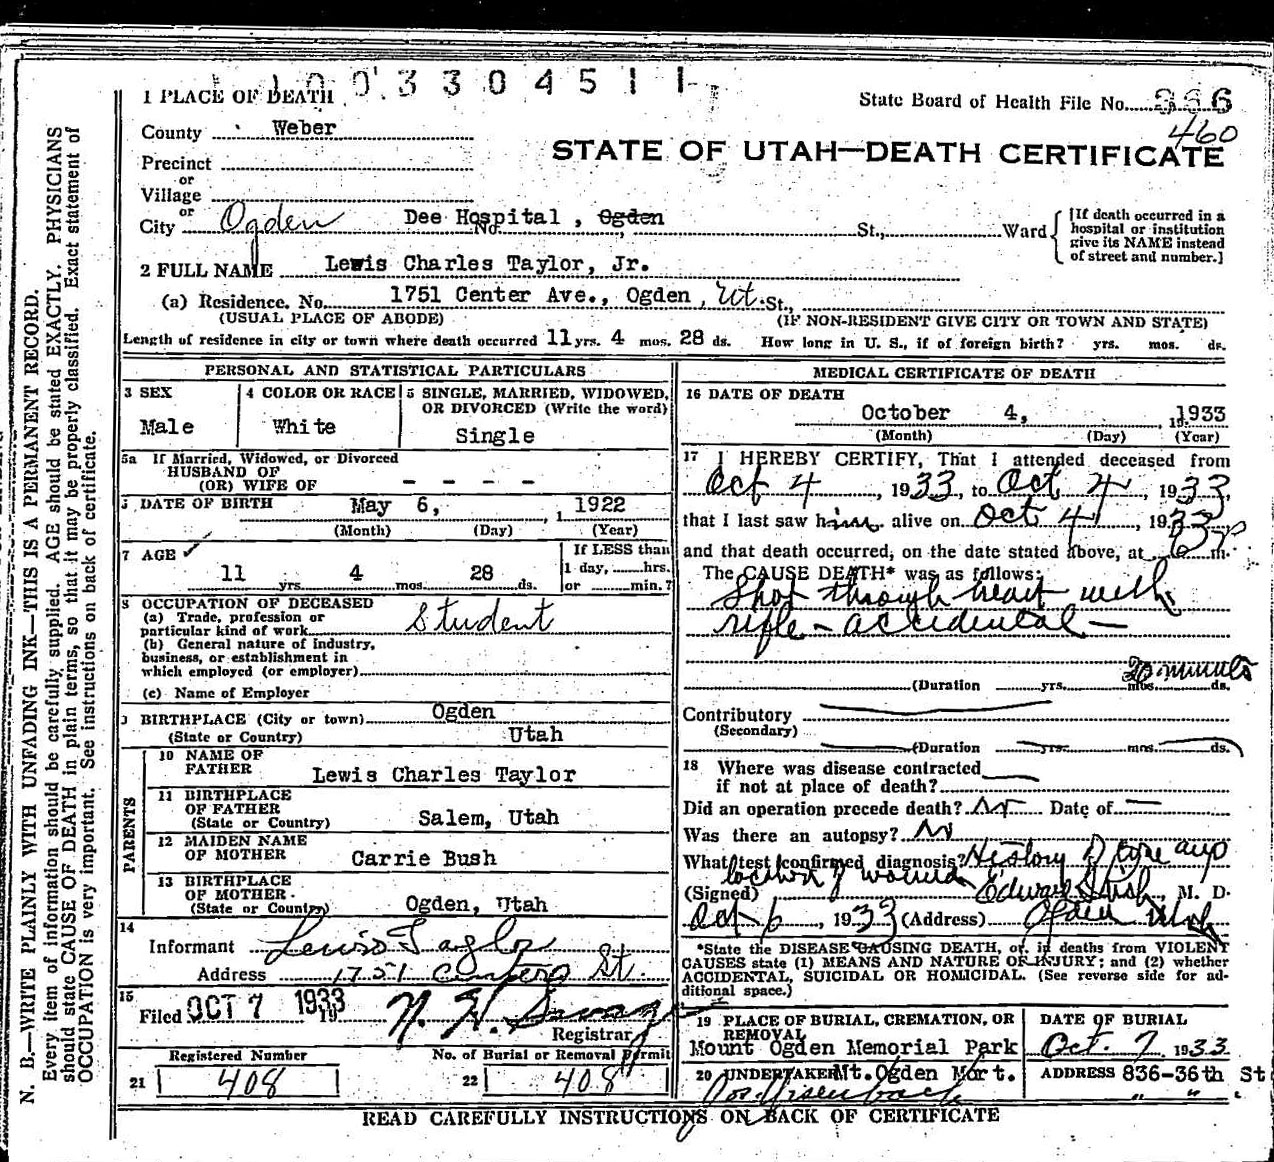 1 0 0 3 3 0 4 5 1 1
1 PLACE OF DEATH
State Board of Health File No. 366
460
County Weber
STATE OF UTAH—DEATH CERTIFICATE
Precinct
or
Village
or
City Ogden Dee Hospital, Ogden No. St., Ward
[If death occurred in a
hospital or institution
give its NAME instead
of street and number.]
2 FULL NAME Lewis Charles Taylor, Jr.
(a) Residence. No. 1751 Center Ave., Ogden, Ut. St.,
(USUAL PLACE OF ABODE) (IF NON-RESIDENT GIVE CITY OR TOWN AND STATE)
Length of residence in city or town where death occurred 11 yrs. 4 mos. 28 ds. How long in U. S., if of foreign birth? yrs. mos. ds.
PERSONAL AND STATISTICAL PARTICULARS
3 SEX
Male
4 COLOR OR RACE
White
5 SINGLE, MARRIED, WIDOWED,
OR DIVORCED (Write the word)
Single
5a If Married, Widowed, or Divorced
HUSBAND OF
(OR) WIFE OF - - - -
DATE OF BIRTH May 6, 1922
(Month) (Day) (Year)
7 AGE
11 yrs. 4 mos. 28 ds.
If LESS than
1 day, hrs.
or min.?
8 OCCUPATION OF DECEASED
(a) Trade, profession or
particular kind of work Student
(b) General nature of industry,
business, or establishment in
which employed (or employer)
(c) Name of Employer
9 BIRTHPLACE (City or town) Ogden
(State or Country) Utah
PARENTS
10 NAME OF
FATHER Lewis Charles Taylor
11 BIRTHPLACE
OF FATHER
(State or Country) Salem, Utah
12 MAIDEN NAME
OF MOTHER Carrie Bush
13 BIRTHPLACE
OF MOTHER
(State or Country) Ogden, Utah
14
Informant Lewis Taylor
Address 1751 Center St
15
Filed OCT 7 1933
Registrar
Registered Number
21 408
No. of Burial or Removal Permit
22 408
MEDICAL CERTIFICATE OF DEATH
16 DATE OF DEATH
October 4, 1933
(Month) (Day) (Year)
17 I HEREBY CERTIFY, That I attended deceased from
Oct 4, 1933, to Oct 4, 1933,
that I last saw him alive on Oct 4, 1933
and that death occurred, on the date stated above, at m.
The CAUSE DEATH* was as follows:
Shot through heart with
rifle - accidental -
20 minutes
(Duration yrs. mos. ds.
Contributory
(Secondary)
(Duration yrs. mos. ds.
18 Where was disease contracted
if not at place of death?
Did an operation precede death? No Date of
Was there an autopsy? No
What test confirmed diagnosis? History of case and
location of wound
(Signed) Edward , M. D.
Oct 6, 1933 (Address) Ogden Utah
*State the DISEASE CAUSING DEATH, or, in deaths from VIOLENT
CAUSES state (1) MEANS AND NATURE OF INJURY; and (2) whether
ACCIDENTAL, SUICIDAL OR HOMICIDAL. (See reverse side for ad-
ditional space.)
19 PLACE OF BURIAL, CREMATION, OR
REMOVAL
Mount Ogden Memorial Park
DATE OF BURIAL
Oct. 7 1933
20 UNDERTAKER Mt. Ogden Mort.
ADDRESS 836-36th St
" "
READ CAREFULLY INSTRUCTIONS ON BACK OF CERTIFICATE
N. B.—WRITE PLAINLY WITH UNFADING INK—THIS IS A PERMANENT RECORD.
Every item of information should be carefully supplied. AGE should be stated EXACTLY. PHYSICIANS
should state CAUSE OF DEATH in plain terms, so that it may be properly classified. Exact statement of
OCCUPATION is very important. See instructions on back of certificate.